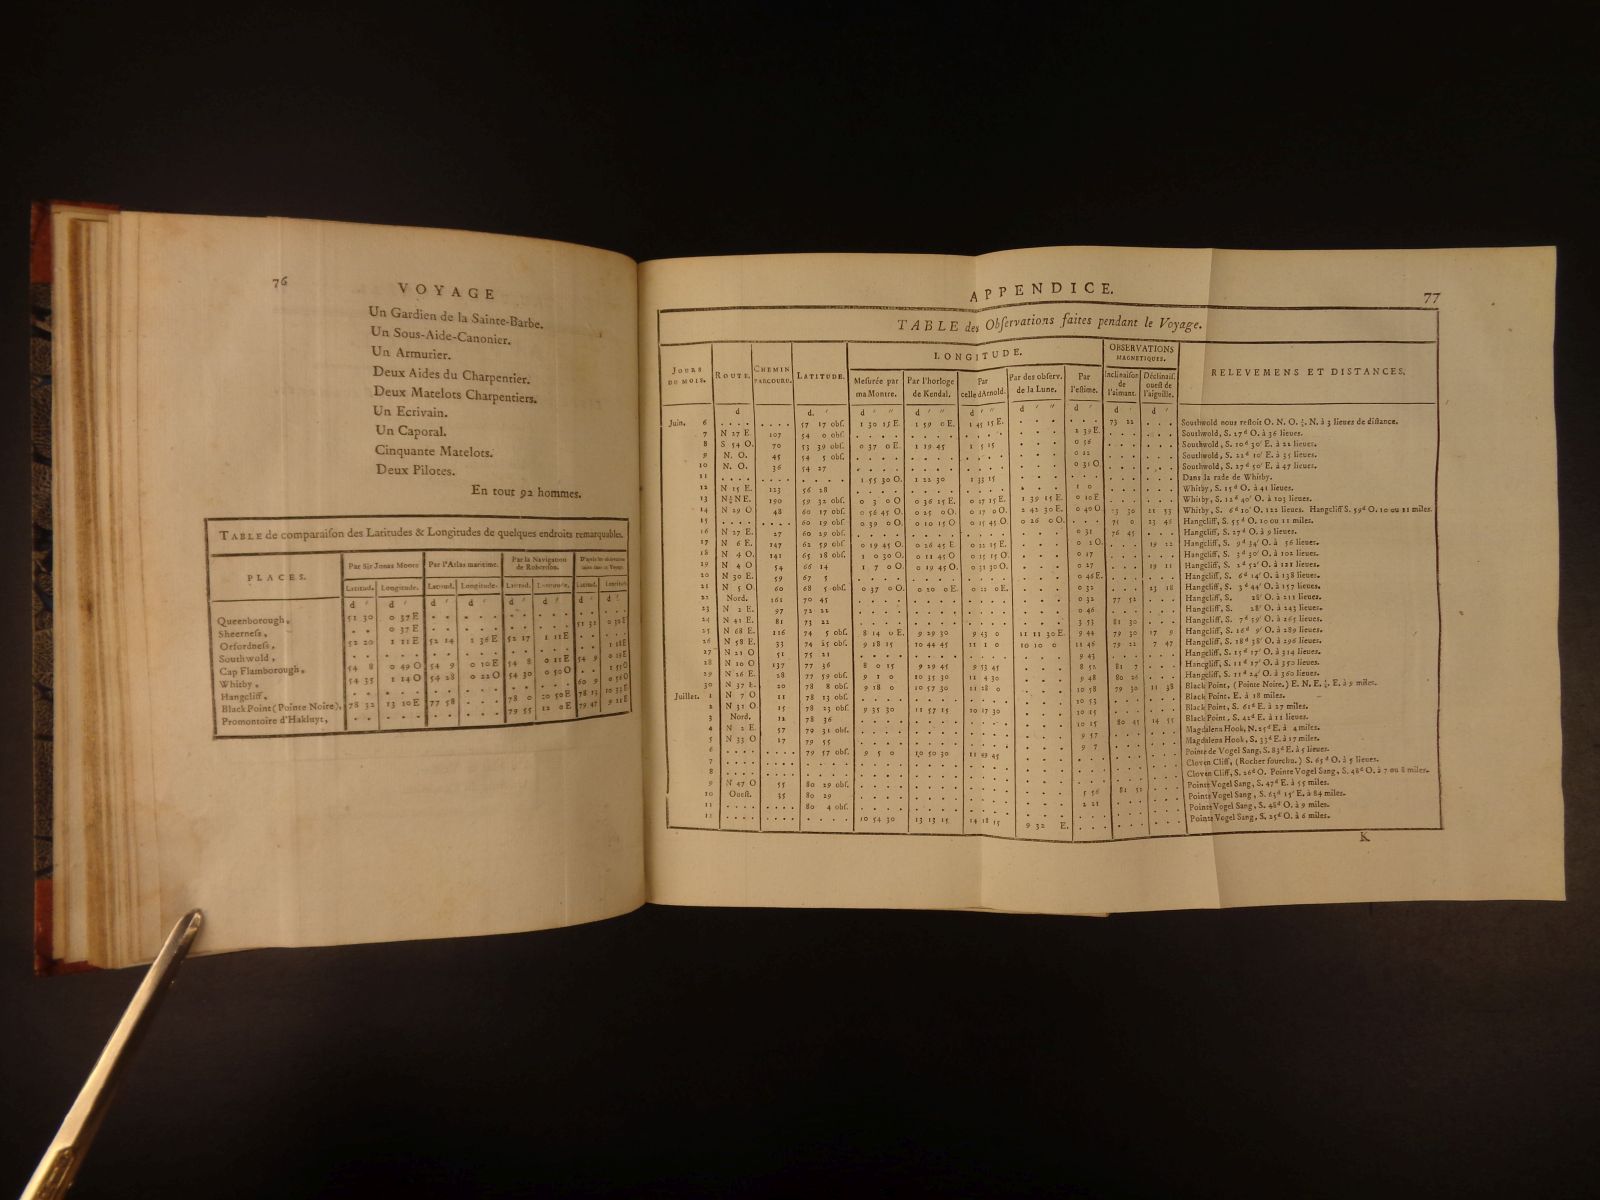 76
VOYAGE
Un Gardien de la Sainte-Barbe.
Un Sous-Aide-Canonier.
Un Armurier.
Deux Aides du Charpentier.
Deux Matelots Charpentiers.
Un Ecrivain.
Un Caporal.
Cinquante Matelots.
Deux Pilotes.
En tout 92 hommes.
TABLE de comparaiſon des Latitudes & Longitudes de quelques endroits remarquables.
PLACES. Par Sir Jonas Moore Par l'Atlas maritime. Par la Navigation de Robertſon.
Latitud. Longitude. Latitud. Longitude. Latitud. Longitude. Latitud. Longitud.
d ′ d ′ d ′ d ′ d ′ d ′ d ′ d ′
Queenborough,
Sheerneſs,
Orfordneſs,
Southwold,
Cap Flamborough,
Whitby,
Hangcliff,
Black Point (Pointe Noire),
Promontoire d'Hakluyt,
APPENDICE.
77
TABLE des Obſervations faites pendant le Voyage.
JOURS DU MOIS. ROUTE. CHEMIN PARCOURU. LATITUDE. LONGITUDE. OBSERVATIONS MAGNETIQUES. RELEVEMENS ET DISTANCES.
Meſurée par ma Montre. Par l'horloge de Kendal. Par celle d'Arnold. Par des obſerv. de la Lune. Par l'eſtime. Inclinaiſon de l'aimant. Déclinaiſ. oueſt de l'aiguille.
Juin. 6 57 17 obſ. 1 30 15 E. 1 59 0 E. 1 45 15 E. 73 22 Southwold nous reſtoit O. N. O. ½. N. à 3 lieues de diſtance.
7 N 27 E. 107 54 0 obſ. 1 39 E. Southwold, S. 27d O. à 36 lieues.
8 S 54 O. 70 53 39 obſ. 0 37 0 E. 1 19 45 1 5 15 0 56 Southwold, S. 10d 30′ E. à 22 lieues.
9 N. O. 45 54 5 obſ. 0 22 Southwold, S. 22d 10′ E. à 35 lieues.
10 N. O. 36 54 27 0 31 O. Southwold, S. 27d 50′ E. à 47 lieues.
11 1 55 30 O. 1 22 30 1 33 15 Dans la rade de Whitby.
12 N 15 E. 123 56 28 1 0 Whitby, S. 15d O. à 41 lieues.
13 N½NE. 190 59 32 obſ. 0 3 0 O 0 36 15 E. 0 17 15 E. 1 39 15 E. 0 10 E Whitby, S. 12d 40′ O. à 103 lieues.
14 N 29 O 48 60 17 obſ. 0 56 45 O. 0 25 0 O. 0 17 0 O. 2 42 30 E. 0 40 O. 73 30 11 53 Whitby, S. 6d 10′ O. 122 lieues. Hangcliff S. 59d O. 10 ou 11 miles.
15 60 19 obſ. 0 39 0 O. 0 10 15 O 0 15 45 O. 0 26 0 O. 75 0 23 46 Hangcliff, S. 55d O. 10 ou 11 miles.
16 N 27 E. 27 60 29 obſ. 0 31 76 45 Hangcliff, S. 27d O. à 9 lieues.
17 N 6 E. 147 62 59 obſ. 0 19 45 O. 0 26 45 E. 0 22 15 E. 0 2 O. 19 22 Hangcliff, S. 9d 34′ O. à 56 lieues.
18 N 4 O. 141 65 18 obſ. 1 0 30 O. 0 11 45 O 0 15 15 O. 0 17 Hangcliff, S. 3d 30′ O. à 102 lieues.
19 N 4 O 54 66 14 1 7 0 O. 0 19 45 O. 0 31 30 O. 0 27 19 11 Hangcliff, S. 2d 52′ O. à 121 lieues.
20 N 30 E. 59 67 5 0 46 E. Hangcliff, S. 6d 14′ O. à 138 lieues.
21 N 5 O. 60 68 5 obſ. 0 37 0 O. 0 20 0 E. 0 22 0 E. 0 32 23 18 Hangcliff, S. 3d 44′ O. à 157 lieues.
22 Nord. 161 70 45 0 32 77 52 Hangcliff, S. 28′ O. à 211 lieues.
23 N 2 E. 97 72 22 0 46 Hangcliff, S. 28′ O. à 243 lieues.
24 N 41 E. 81 73 22 3 53 81 30 Hangcliff, S. 7d 59′ O. à 265 lieues.
25 N 68 E. 116 74 5 obſ. 8 14 0 E. 9 29 30 9 43 0 11 11 30 E. 9 44 79 30 17 9 Hangcliff, S. 16d 9′ O. à 289 lieues.
26 N 58 E. 33 74 25 obſ. 9 18 15 10 44 45 11 1 0 10 10 0 11 46 79 22 7 47 Hangcliff, S. 18d 38′ O. à 296 lieues.
27 N 21 O 51 75 21 9 43 Hangcliff, S. 15d 17′ O. à 314 lieues.
28 N 10 O 137 77 36 8 0 15 9 29 45 9 53 45 8 52 81 7 Hangcliff, S. 11d 17′ O. à 350 lieues.
29 N 26 E. 28 77 59 obſ. 9 1 0 10 35 30 11 4 30 9 48 80 26 Hangcliff, S. 11d 24′ O. à 360 lieues.
30 N 37 E. 20 78 8 obſ. 9 18 0 10 57 30 11 28 0 10 58 79 30 11 38 Black Point, (Pointe Noire.) E. N. E. ½. E. à 9 miles.
Juillet. 1 N 7 O 11 78 13 obſ. 10 53 Black Point. E. à 18 miles.
2 N 31 O 15 78 23 obſ. 9 35 30 11 57 15 10 17 30 10 15 Black Point, S. 61d E. à 27 miles.
3 Nord. 12 78 36 10 15 80 45 14 55 Black Point, S. 42d E. à 11 lieues.
4 N 2 E. 57 79 31 obſ. 9 57 Magdalena Hook, N. 25d E. à 4 miles.
5 N 33 O 17 79 55 9 7 Magdalena Hook, S. 33d E. à 17 miles.
6 79 57 obſ. 9 5 0 10 50 30 11 49 45 Pointe de Vogel Sang, S. 83d E. à 5 lieues.
7 Cloven Cliff, (Rocher fourchu.) S. 65d O. à 5 lieues.
8 Cloven Cliff, S. 26d O. Pointe Vogel Sang, S. 48d O. à 7 ou 8 miles.
9 N 47 O 55 80 29 obſ. 5 56 81 52 Pointe Vogel Sang, S. 47d E. à 55 miles.
10 Oueſt. 35 80 29 2 21 Pointe Vogel Sang, S. 65d 15′ E. à 84 miles.
11 80 4 obſ. Pointe Vogel Sang, S. 48d O. à 9 miles.
12 10 54 30 13 13 15 14 18 15 9 32 E. Pointe Vogel Sang, S. 25d O. à 6 miles.
K